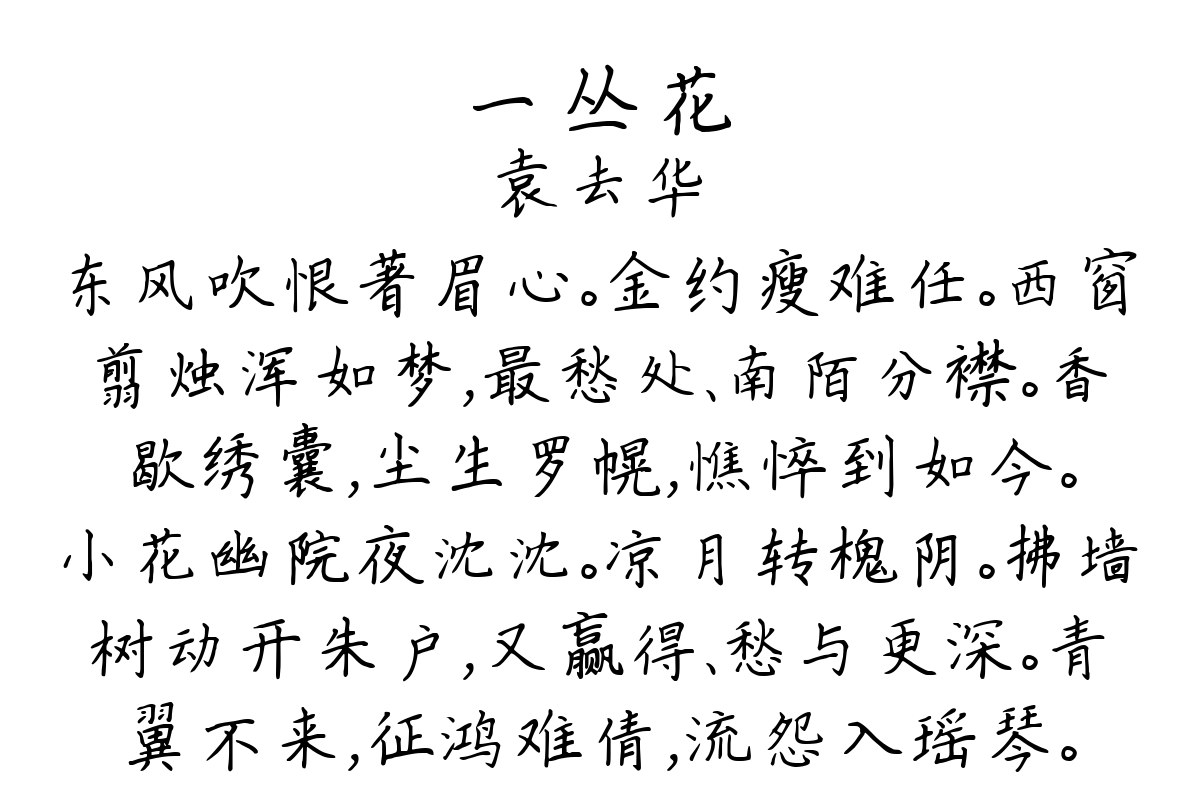 一丛花
袁去华
东风吹恨著眉心。金约瘦难任。西窗
翦烛浑如梦,最愁处、南陌分襟。香
歇绣囊,尘生罗幌,憔悴到如今。
小花幽院夜沈沈。凉月转槐阴。拂墙
树动开朱户,又赢得、愁与更深。青
翼不来,征鸿难倩,流怨入瑶琴。